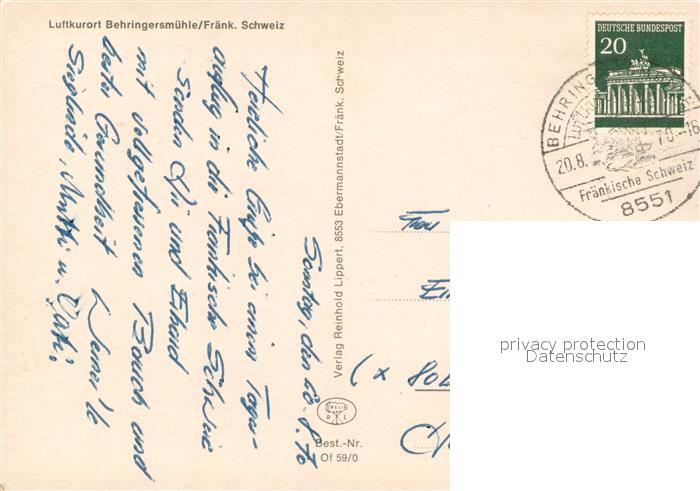 Luftkurort Behringersmühle/Fränk. Schweiz
Sonntag, den 20.8.70
Herzliche Grüße bei einem Tages-
ausflug in die Fränkische Schweiz
senden und Erhard
mit vollgefressenen Bauch und
bester Gesundheit
Sieglinde, Mutti u. Vati!
Verlag Reinhold Lippert, 8553 Ebermannstadt/Fränk. Schweiz
R L
Best.-Nr.
Of 59/0
DEUTSCHE BUNDESPOST
20
BEHRING
20.8. 70-16
Fränkische Schweiz
8551
Frau
(x 80
privacy protection
Datenschutz